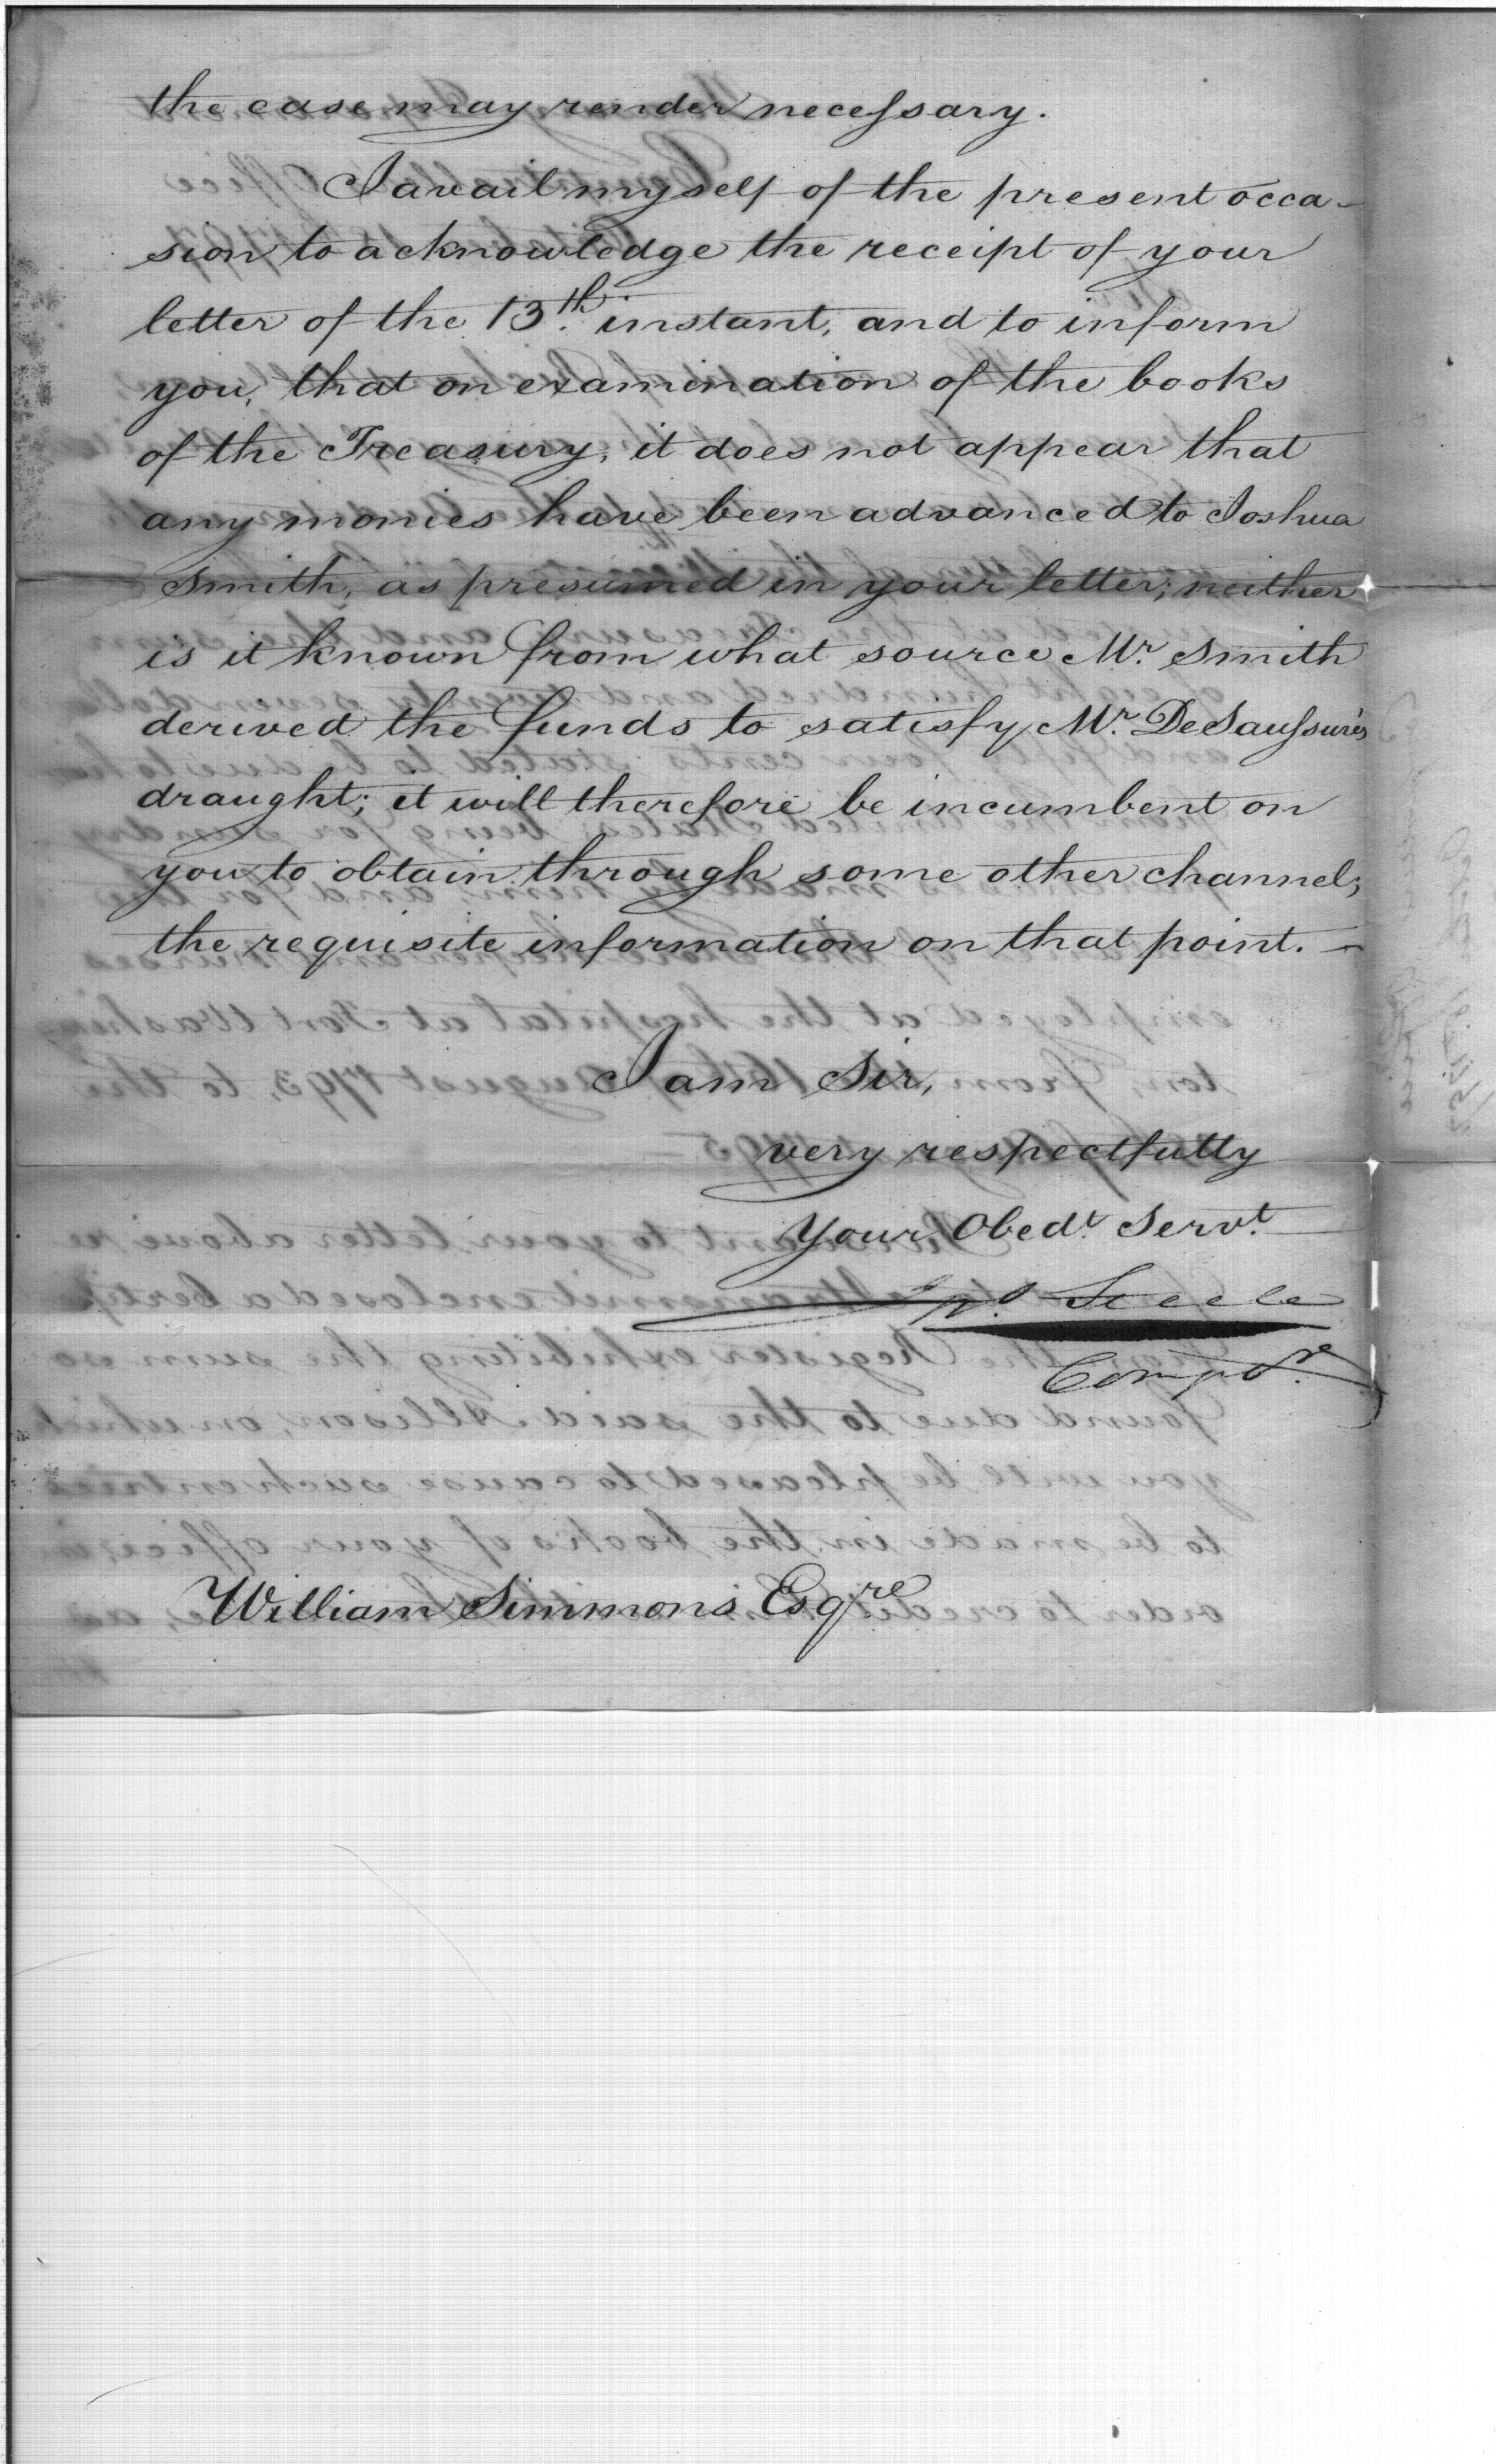 the case may render necessary.
I avail myself of the present occa-
sion to acknowledge the receipt of your
letter of the 13th. instant, and to inform
you, that on examination of the books
of the Treasury, it does not appear that
any monies have been advanced to Joshua
Smith, as presumed in your letter; neither
is it known from what source Mr. Smith
derived the funds to satisfy Mr. DeSaussure's
draught; it will therefore be incumbent on
you to obtain through some other channel,
the requisite information on that point. —
I am Sir,
very respectfully
Your Obedt. Servt.
Jno. Steele
Compr.
William Simmons Esqre